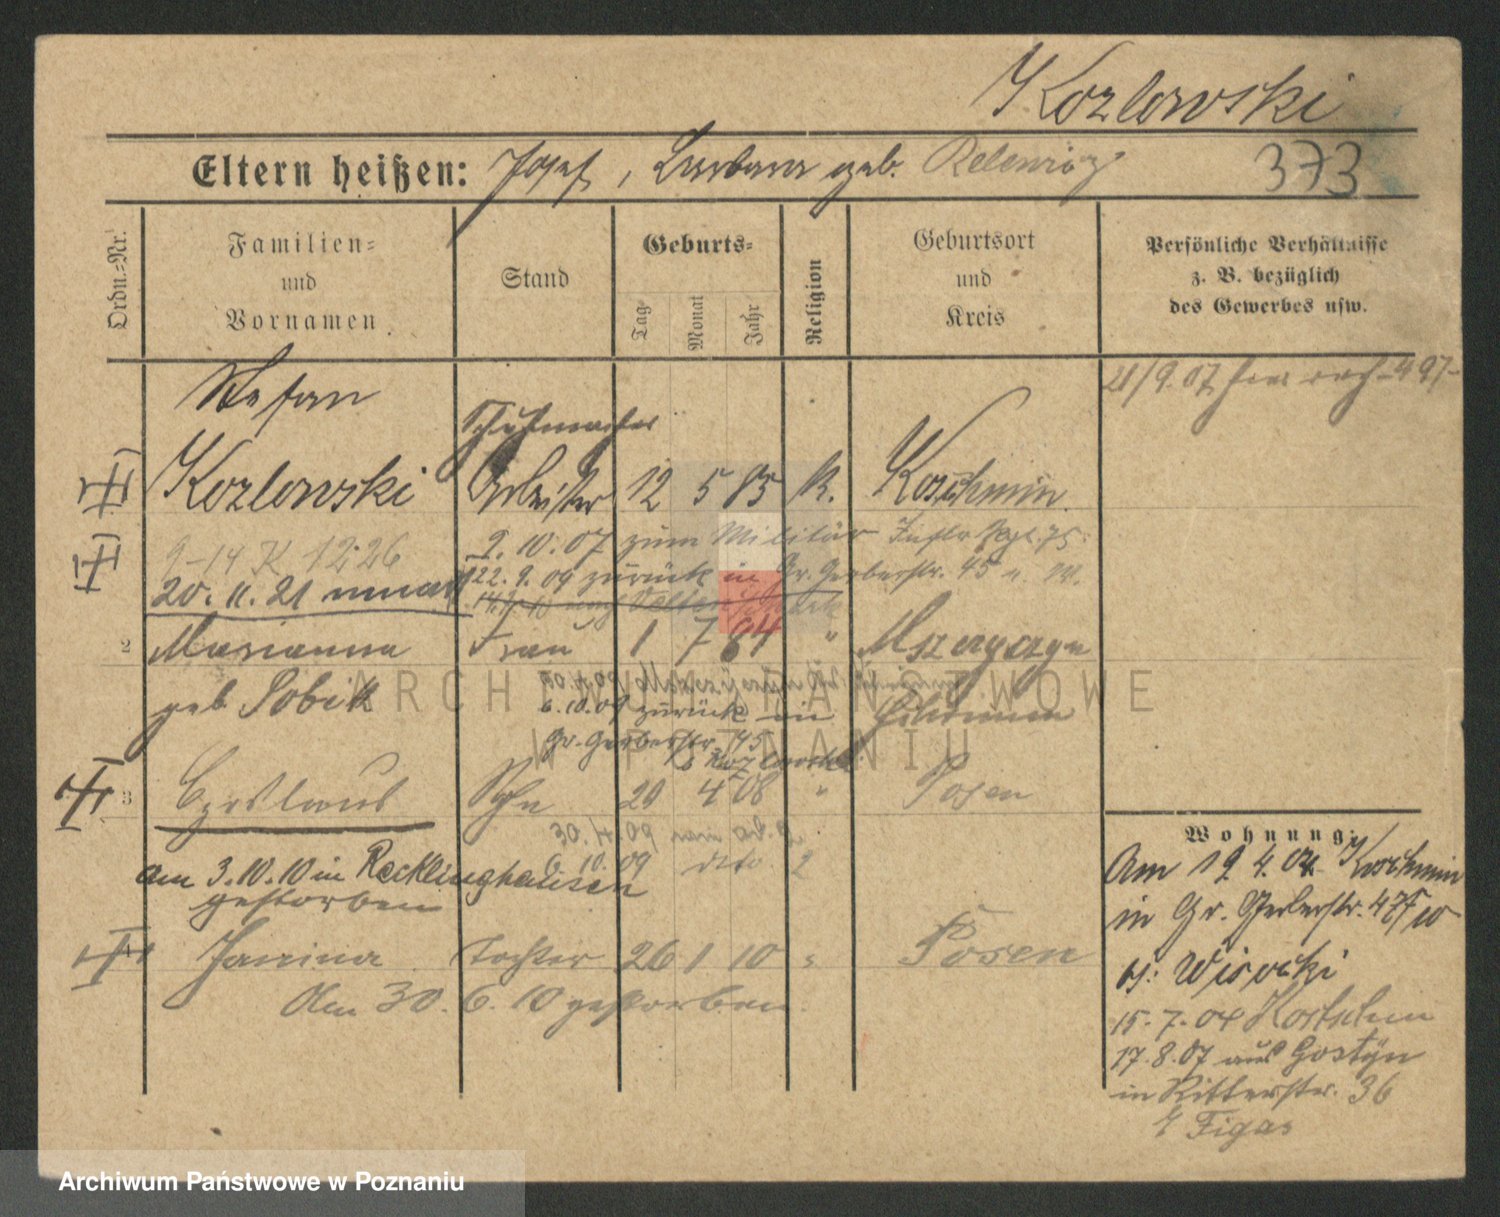 Kozlowski
Eltern heißen: Josef, Barbara geb. Relewicz
373
Ordn.=Nr.
Familien=
und
Vornamen
Stand
Geburts=
Tag
Monat
Jahr
Religion
Geburtsort
und
Kreis
Persönliche Verhältnisse
z. B. bezüglich
des Gewerbes usw.
21/9.07
Stefan
Schuhmacher
Kozlowski Arbeiter 12 5 85 K. Koschmin
9-14 K 1226
2.10.07 zum Militär
20.11.21
22.9.09 zurück in Gr. Gerberstr. 45
2 Marianna Frau 1 7 84 "
geb Sobik
6.10.09 zurück in
Gr. Gerberstr. 45
b Kozlowski
3 Czeslaus Sohn 20 4 08 " Posen
30.4.09
6.10.09 dto.
am 3.10.10 in Recklinghausen
gestorben
4 Janina Tochter 26 1 10 " Posen
Am 30. 6. 10 gestorben.
Wohnung:
Am 19 4.04 Koschmin
in Gr. Gerberstr. 47/10
b: Wisocki
15.7.04
17.8.07 aus Gostyn
in Ritterstr. 36
b Figas
ARCHIWUM PAŃSTWOWE
W POZNANIU
Archiwum Państwowe w Poznaniu